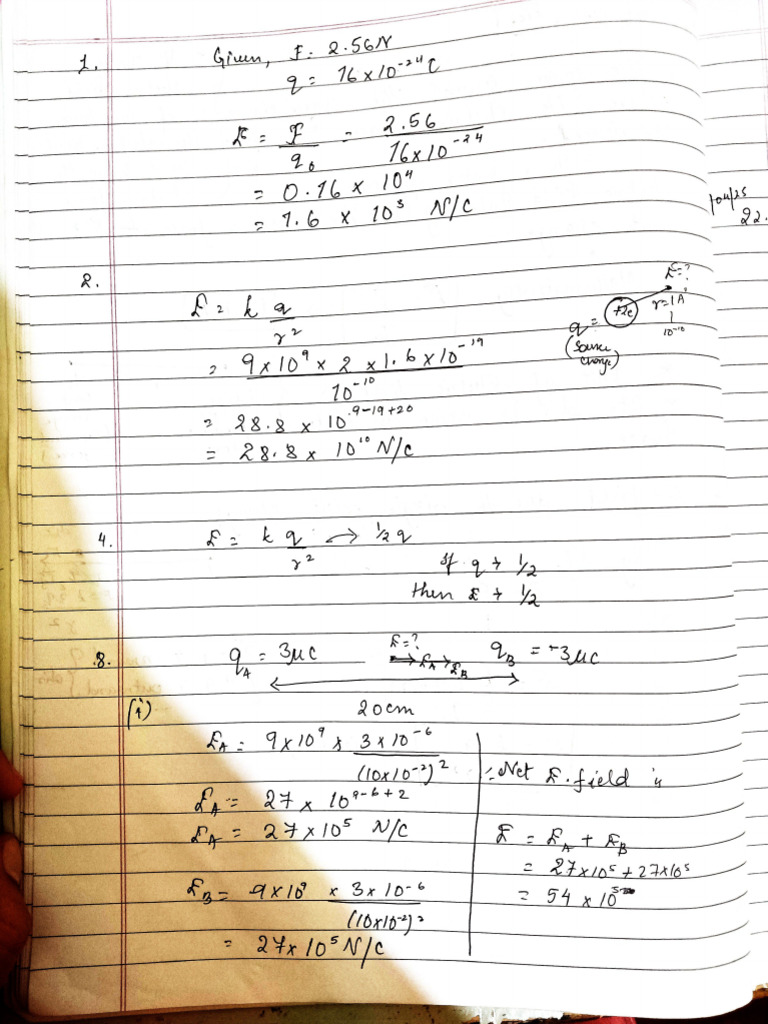 1. Given, F: 2.56N
q = 16 x 10^-24 C
E = F/q₀ = 2.56/16 x 10^-24
= 0.16 x 10^4
= 1.6 x 10^3 N/C
/04/25
22.
2.
E = k q/r²
= 9 x 10^9 x 2 x 1.6 x 10^-19/10^-10
= 28.8 x 10^9-19+20
= 28.8 x 10^10 N/C
E=?
q = +2e r=1A°
10^-10
(source
charge)
4. E = k q/r² → 1/2 q
If q → 1/2
then E → 1/2
8. q_A = 3μc E=? → E_A → E_B q_B = -3μc
20cm
(i)
E_A = 9 x 10^9 x 3 x 10^-6/(10x10^-2)^2
E_A = 27 x 10^9-6+2
E_A = 27 x 10^5 N/C
E_B = 9 x 10^9 x 3 x 10^-6/(10x10^-2)^2
= 27 x 10^5 N/C
∴ Net E. field is
E = E_A + E_B
= 27 x 10^5 + 27 x 10^5
= 54 x 10^5